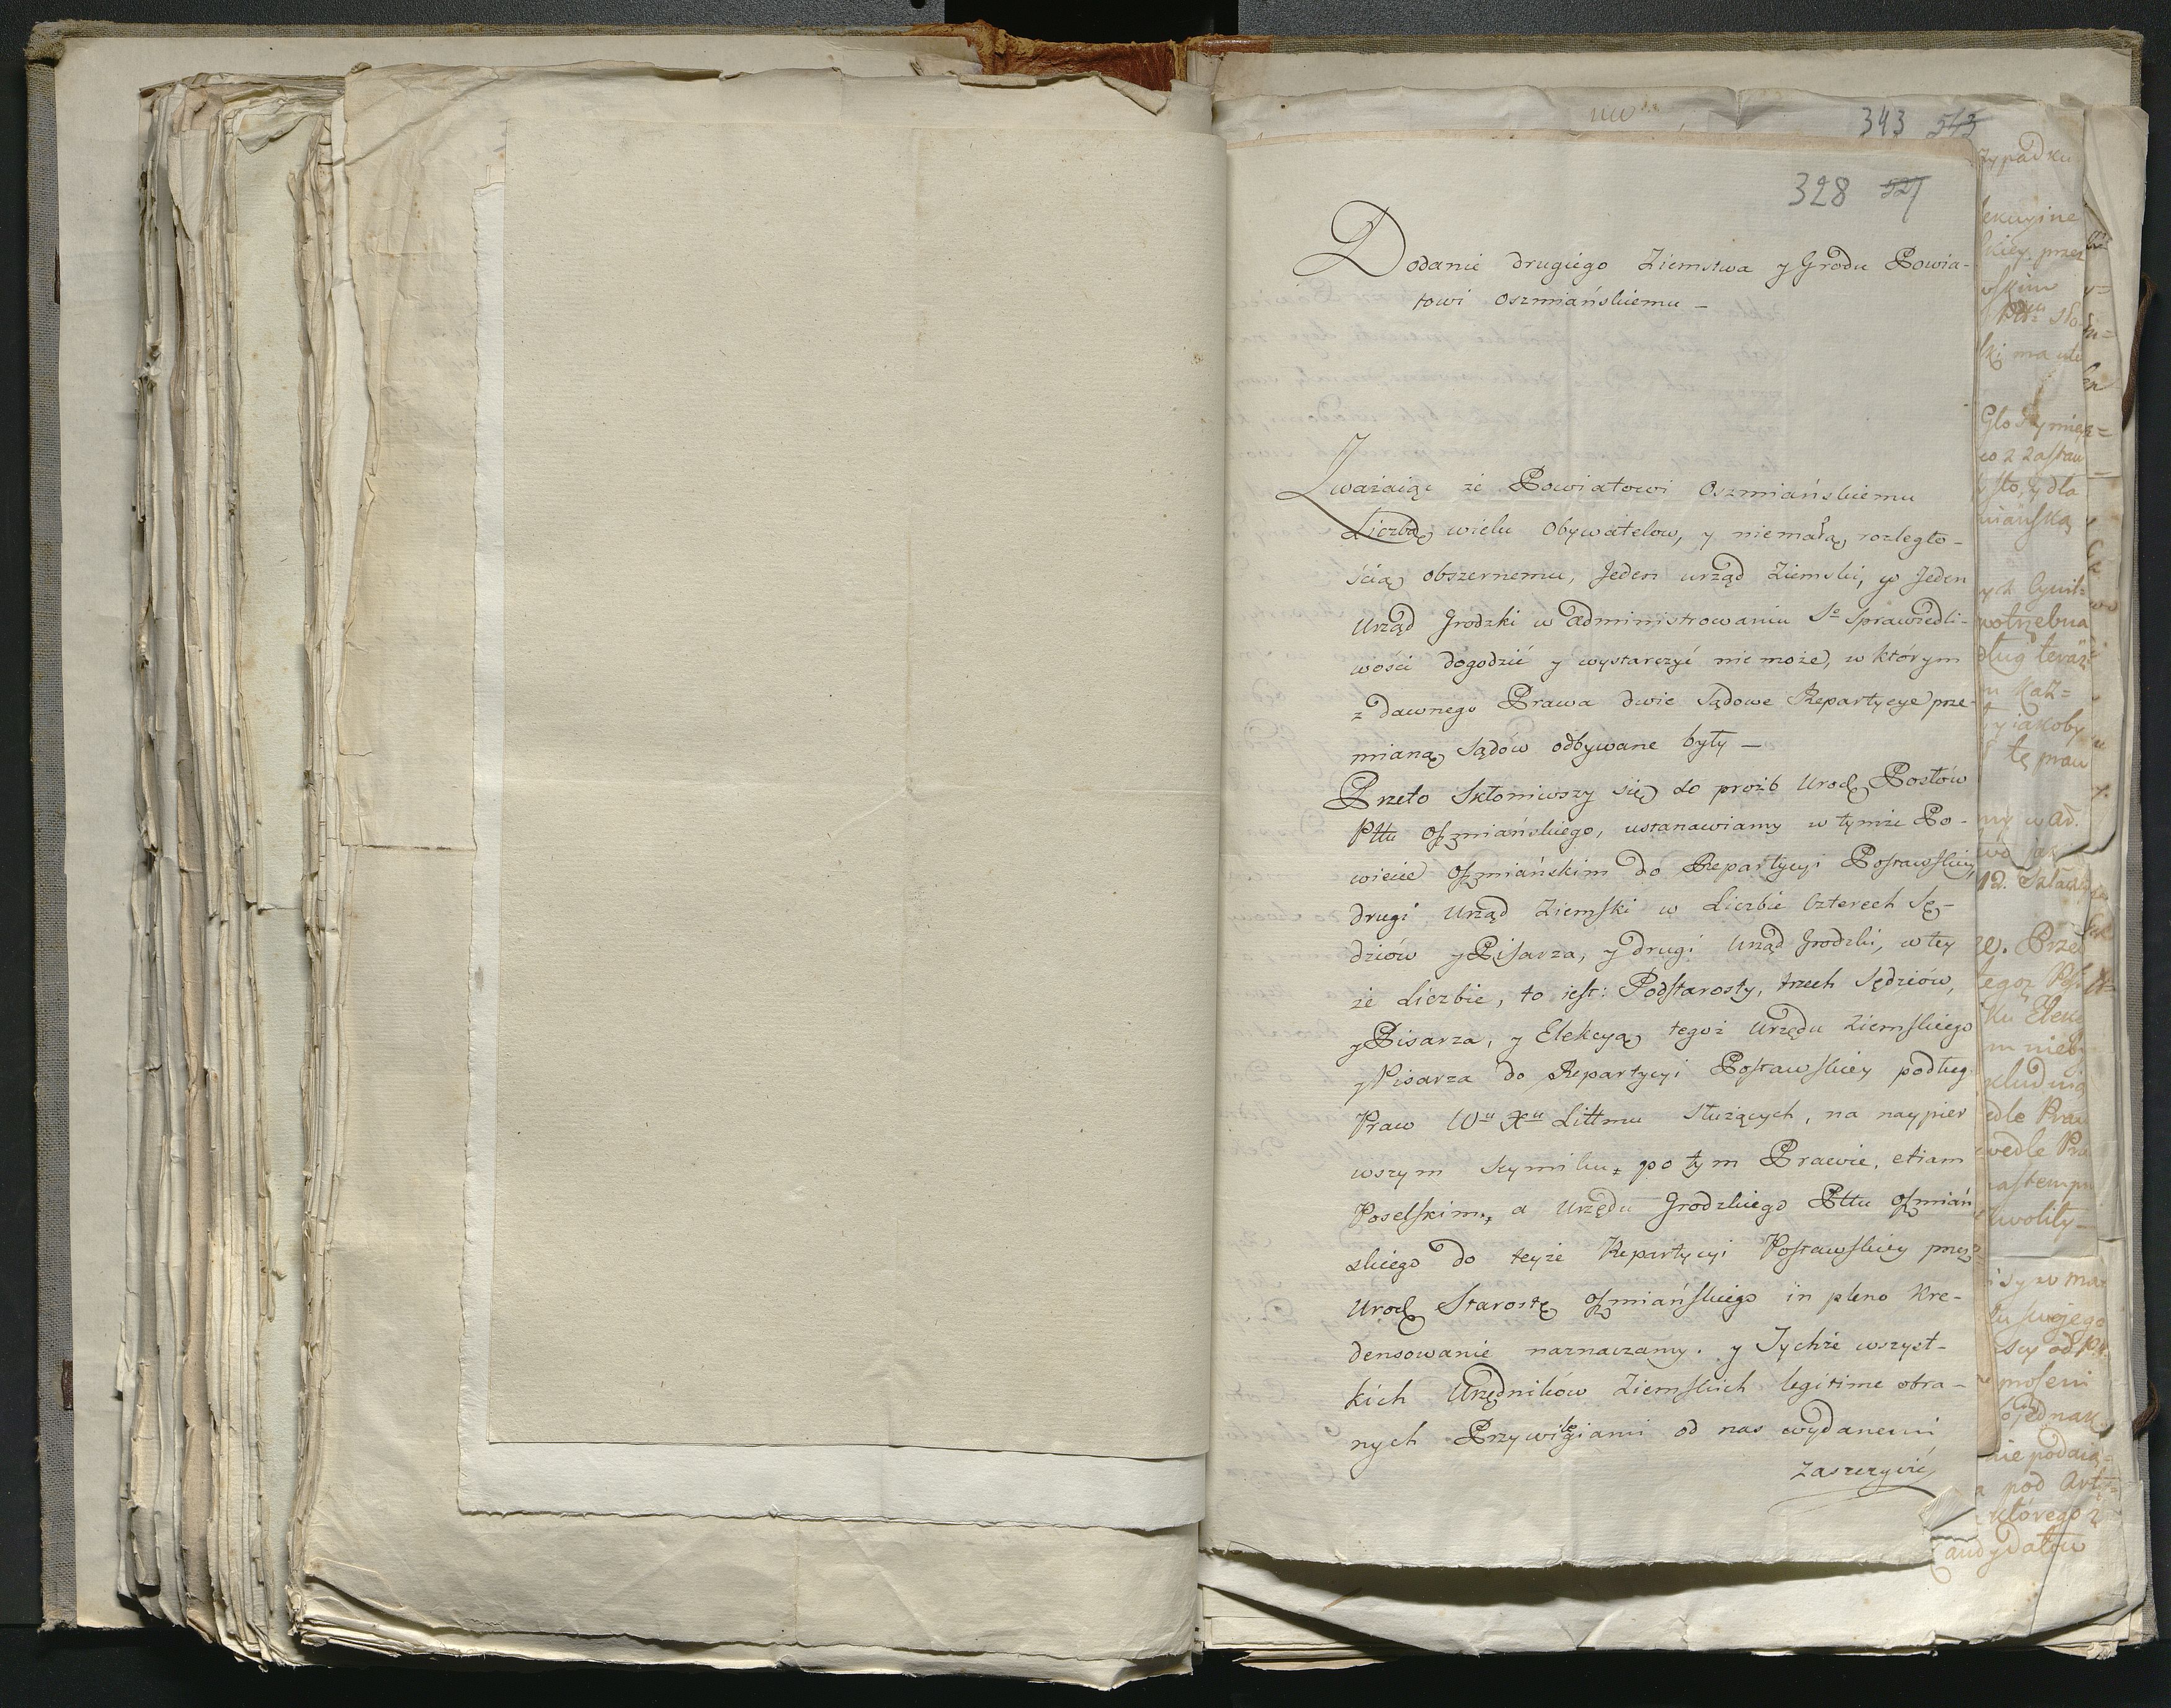 343 543
328 527
Dodanie drugiego Ziemstwa y Grodu Powia-
towi Oszmiańskiemu –
Zważaiąc że Powiatowi Oszmiańskiemu
Liczbą wielu Obywatelow, y niemałą rozległo-
ścią obszernemu, Jeden urząd Ziemski, y Jeden
Urząd Grodzki w administrowaniu S° Sprawiedli-
wości dogodzić y wystarczyć nie może, w którym
z dawnego Prawa dwie Sądowe Repartycye prze-
mianą Sądów odbywane były –
Przeto Skłoniwszy się do proźb Urod Posłów
Pttu Oszmiańskiego, ustanawiamy w tymże Po-
wiecie Oszmiańskim do Repartycyi Postawskiey,
drugi Urząd Ziemski w Liczbie Czterech Sę-
dziów y Pisarza, y drugi Urząd Grodzki, w tey
że Liczbie, to iest: Podstarosty, trzech Sędziów,
y Pisarza, y Elekcyą tegoż Urzędu Ziemskiego
y Pisarza do Repartycyi Postawskiey podług
Praw Wu Xu Littmu Służących, na naypier
wszym Seymiku po tym Prawie, etiam
Poselskim, a Urzędu Grodzkiego Pttu Oszmiań
skiego do teyże Repartycyi Postawskiey przez
Urod Starostę Oszmiańskiego in pleno Kre-
densowanie naznaczamy. y Tychże wszyst-
kich Urzędników Ziemskich legitime obra-
nych Przywilegiami od nas wydanemi
zaszczycić
zypadku
potrzebna
iakoby
12.
swojego
jednak
nie podaią
pod
którego